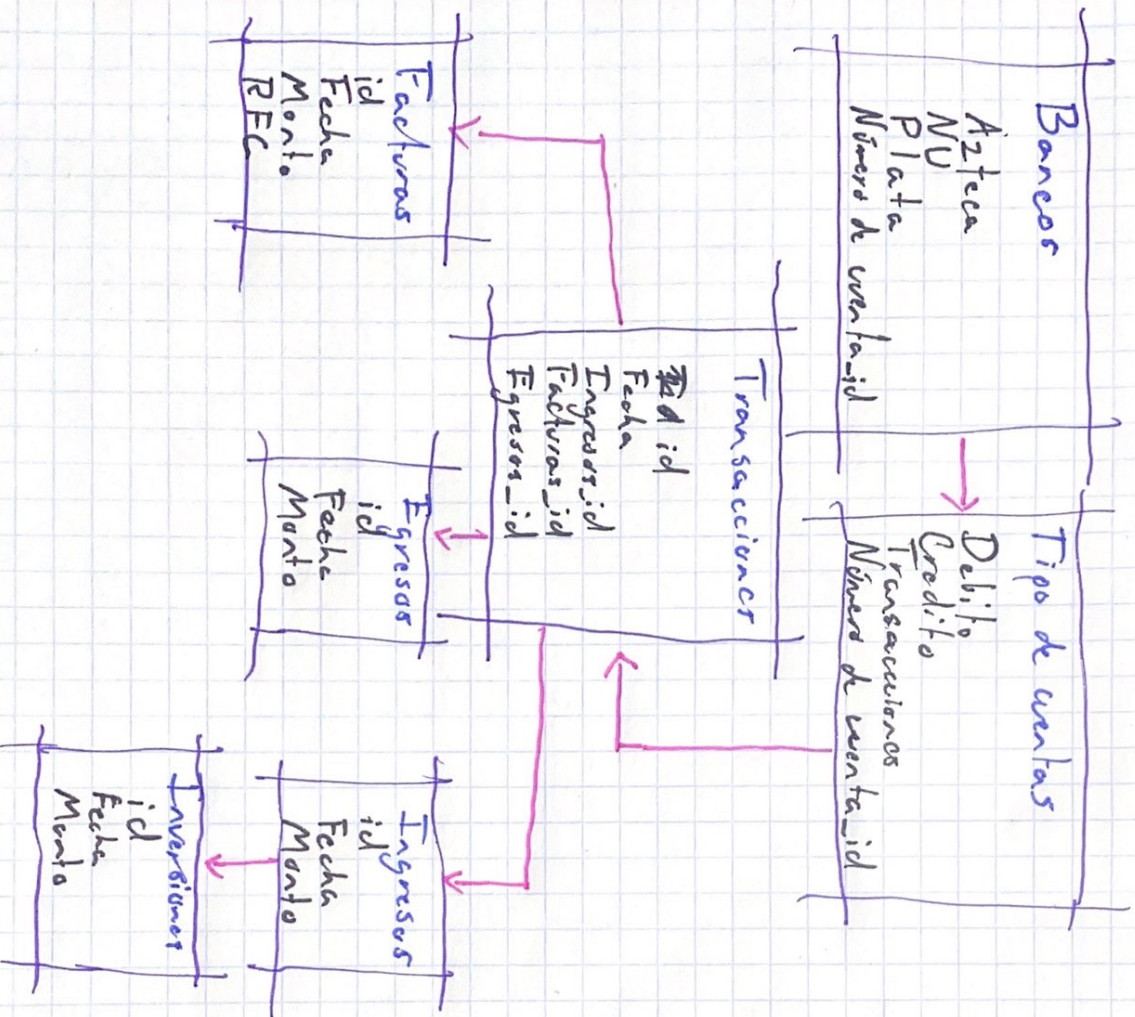 Bancos
Azteca
NU
Plata
Número de cuenta_id
Tipo de cuentas
Debito
Credito
Transacciones
Número de cuenta_id
Transacciones
id
Fecha
Ingresos_id
Facturas_id
Egresos_id
Facturas
id
Fecha
Monto
RFC
Egresos
id
Fecha
Monto
Ingresos
id
Fecha
Monto
Inversiones
id
Fecha
Monto